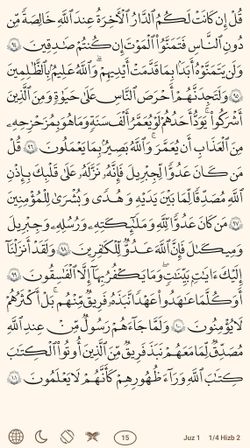 قُلْ إِن كَانَتْ لَكُمُ ٱلدَّارُ ٱلْأَخِرَةُ عِندَ ٱللَّهِ خَالِصَةً مِّن
دُونِ ٱلنَّاسِ فَتَمَنَّوُا۟ ٱلْمَوْتَ إِن كُنتُمْ صَٰدِقِينَ ٩٤
وَلَن يَتَمَنَّوْهُ أَبَدًۢا بِمَا قَدَّمَتْ أَيْدِيهِمْ ۗ وَٱللَّهُ عَلِيمٌۢ بِٱلظَّٰلِمِينَ
٩٥ وَلَتَجِدَنَّهُمْ أَحْرَصَ ٱلنَّاسِ عَلَىٰ حَيَوٰةٍ وَمِنَ ٱلَّذِينَ
أَشْرَكُوا۟ ۚ يَوَدُّ أَحَدُهُمْ لَوْ يُعَمَّرُ أَلْفَ سَنَةٍ وَمَا هُوَ بِمُزَحْزِحِهِۦ
مِنَ ٱلْعَذَابِ أَن يُعَمَّرَ ۗ وَٱللَّهُ بَصِيرٌۢ بِمَا يَعْمَلُونَ ٩٦ قُلْ
مَن كَانَ عَدُوًّا لِّجِبْرِيلَ فَإِنَّهُۥ نَزَّلَهُۥ عَلَىٰ قَلْبِكَ بِإِذْنِ
ٱللَّهِ مُصَدِّقًا لِّمَا بَيْنَ يَدَيْهِ وَهُدًى وَبُشْرَىٰ لِلْمُؤْمِنِينَ
٩٧ مَن كَانَ عَدُوًّا لِّلَّهِ وَمَلَٰٓئِكَتِهِۦ وَرُسُلِهِۦ وَجِبْرِيلَ
وَمِيكَىٰلَ فَإِنَّ ٱللَّهَ عَدُوٌّ لِّلْكَٰفِرِينَ ٩٨ وَلَقَدْ أَنزَلْنَآ
إِلَيْكَ ءَايَٰتٍۭ بَيِّنَٰتٍ ۖ وَمَا يَكْفُرُ بِهَآ إِلَّا ٱلْفَٰسِقُونَ ٩٩
أَوَكُلَّمَا عَٰهَدُوا۟ عَهْدًا نَّبَذَهُۥ فَرِيقٌ مِّنْهُم ۚ بَلْ أَكْثَرُهُمْ
لَا يُؤْمِنُونَ ١٠٠ وَلَمَّا جَآءَهُمْ رَسُولٌ مِّنْ عِندِ ٱللَّهِ
مُصَدِّقٌ لِّمَا مَعَهُمْ نَبَذَ فَرِيقٌ مِّنَ ٱلَّذِينَ أُوتُوا۟ ٱلْكِتَٰبَ
كِتَٰبَ ٱللَّهِ وَرَآءَ ظُهُورِهِمْ كَأَنَّهُمْ لَا يَعْلَمُونَ ١٠١
15 Juz 1 1/4 Hizb 2